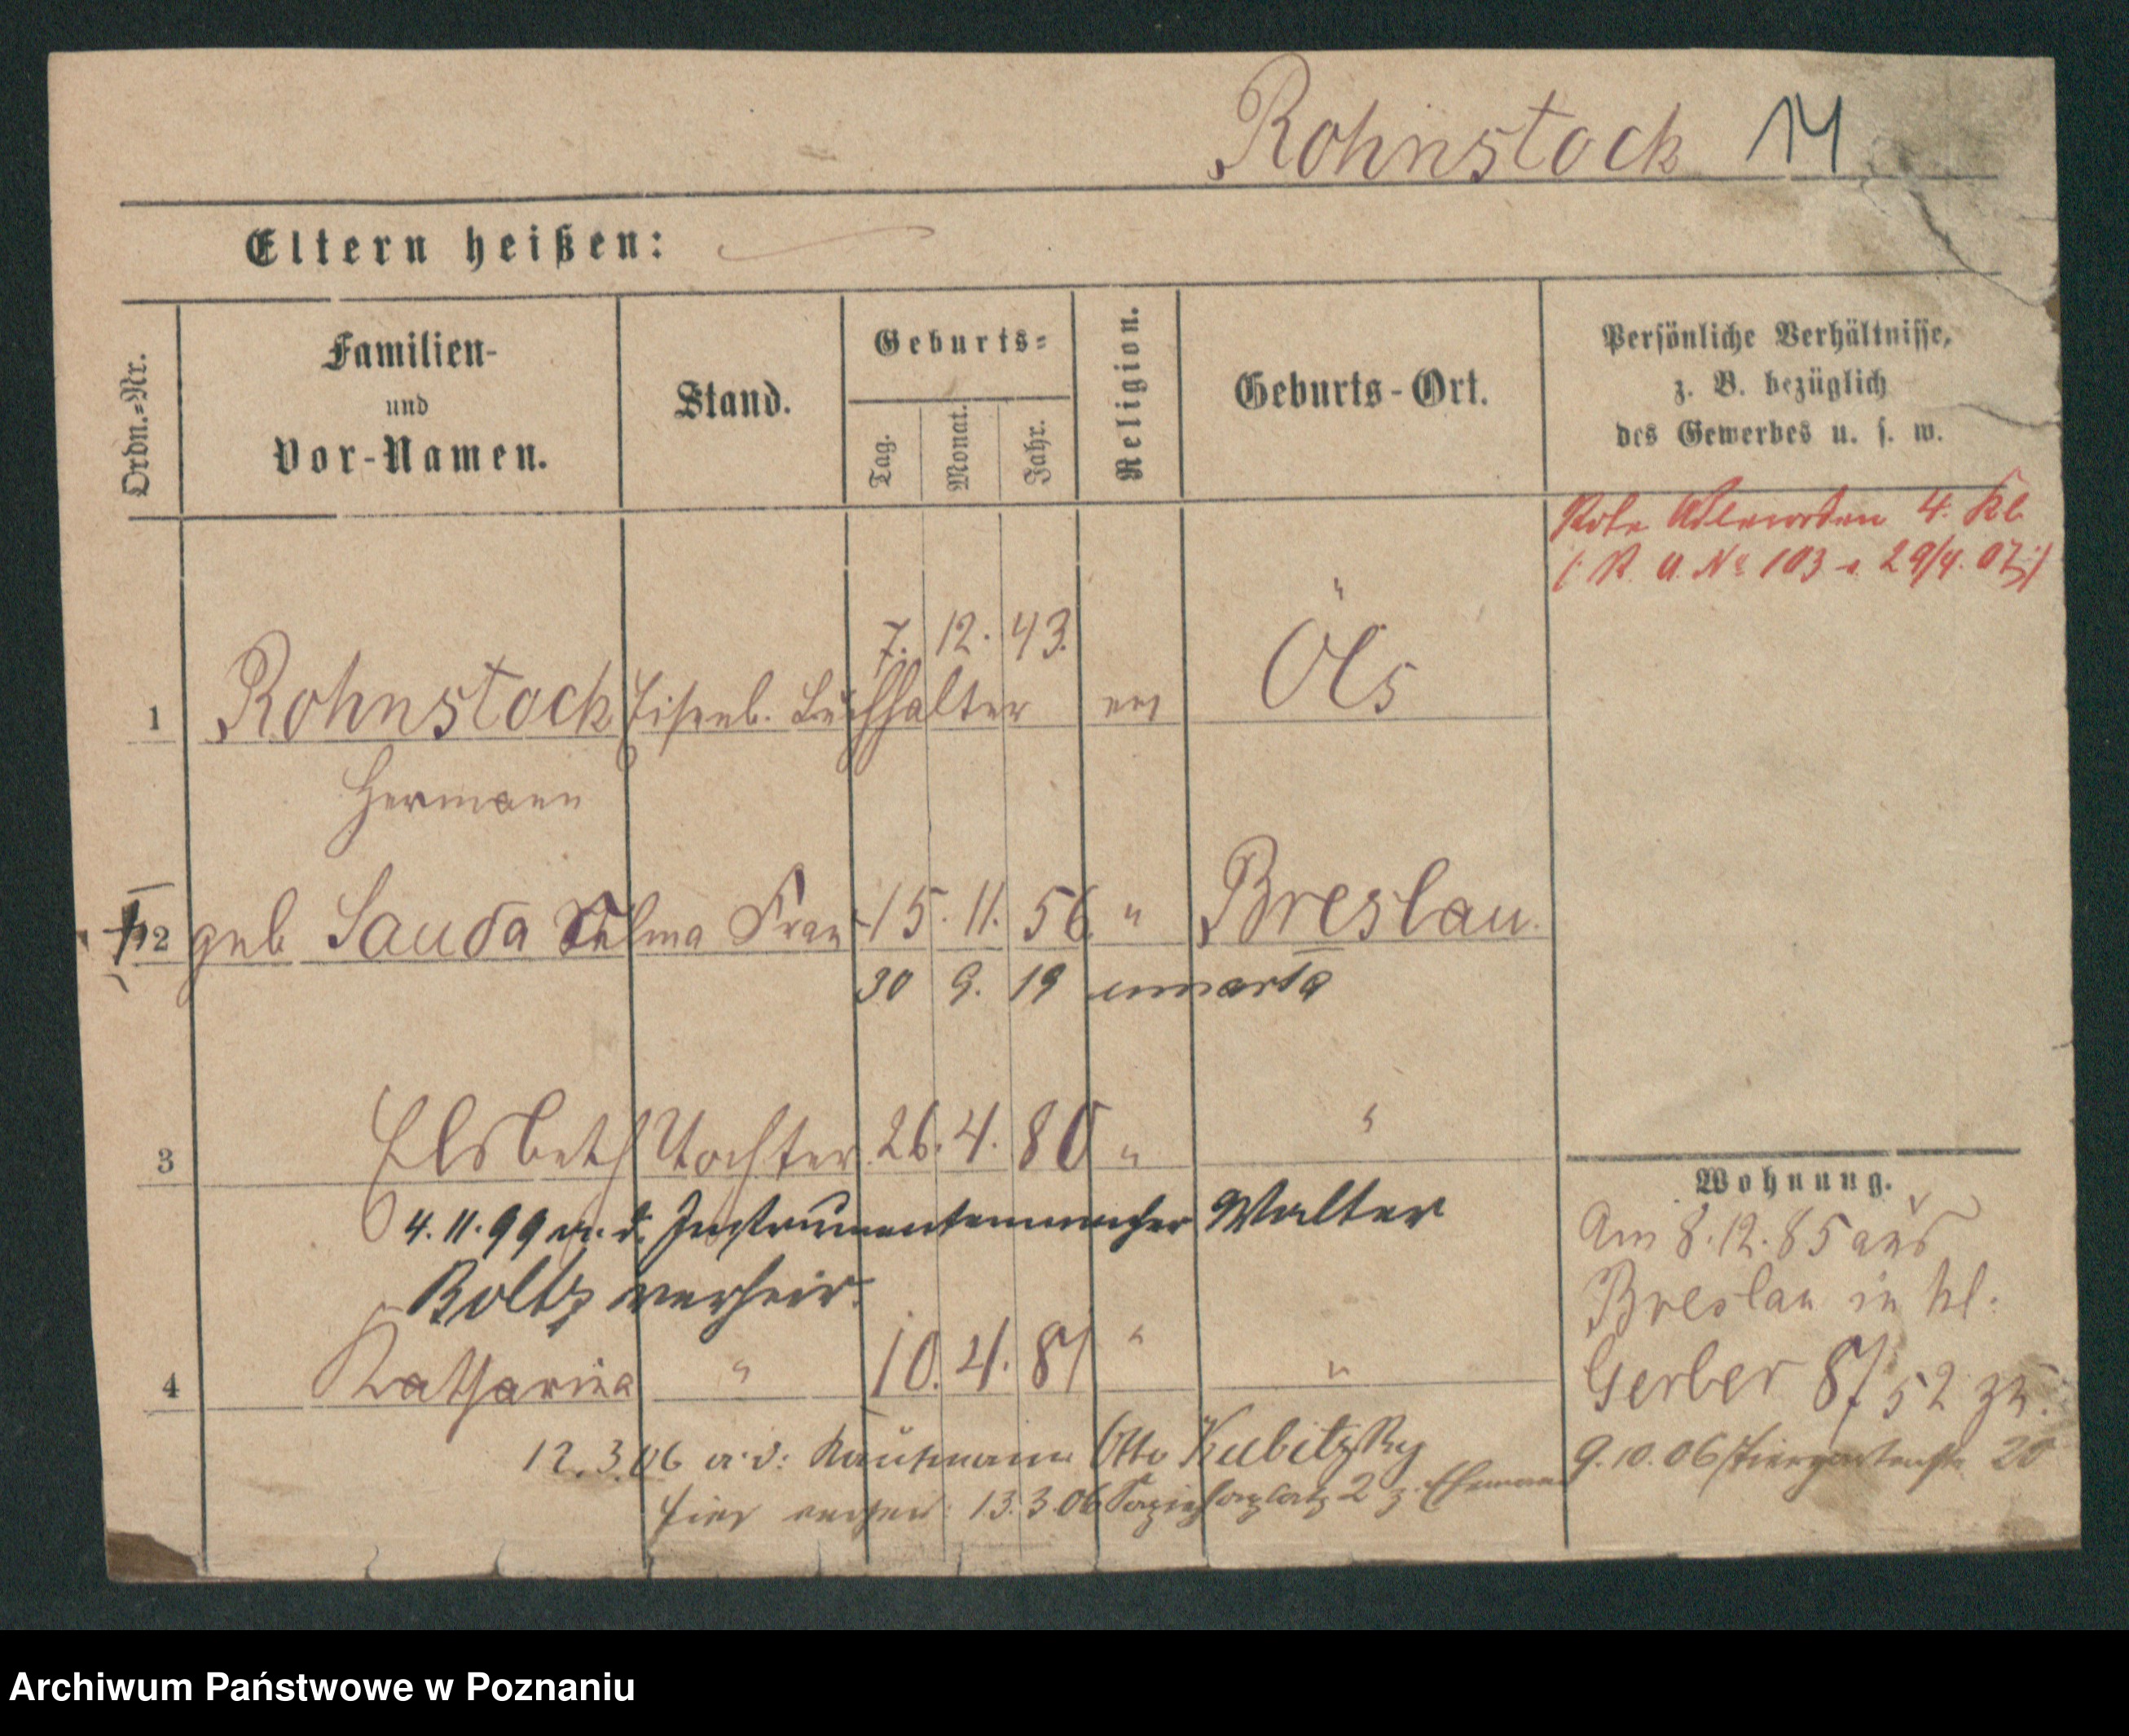 Rohnstock 14
Eltern heißen:
Ordn.-Nr.
Familien-
und
Vor-Namen.
Stand.
Geburts-
Tag.
Monat.
Jahr.
Religion.
Geburts-Ort.
Persönliche Verhältnisse,
z. B. bezüglich
des Gewerbes u. s. w.
Rote Adlerorden 4. Kl.
(: R. A. No 103 v. 29/4. 07 :)
7. 12. 43.
1 Rohnstock Eisenb. Buchhalter ev Öls
Hermann
2 geb Sauda Selma Frau 15. 11. 56. " Breslau.
30 9. 19
3 Elsbeth Tochter 26. 4. 80 " "
4. 11. 99 m. d. Instrumentenmacher Walter
Boltz verheir.
4 Katharina " 10. 4. 81 " "
12. 3. 06 m. d. Kaufmann Otto Kubitzky
hier verheir: 13. 3. 06 2 z. Ehemann
Wohnung.
Am 8. 12. 85 aus
Breslau in kl.
Gerber 8/ 52 zu.
9. 10. 06 Tiergartenstr 20
Archiwum Państwowe w Poznaniu